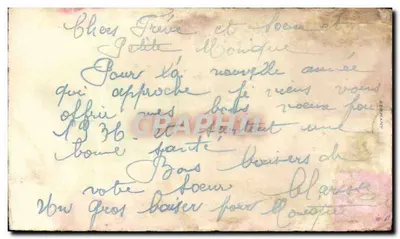 Chers Frère et Soeur et
Petite Monique
Pour la nouvelle année
qui approche je viens vous
offrir mes bons voeux pour
1936 et surtout une
bonne santé
Bons baisers de
votre soeur
Un gros baiser pour Monique